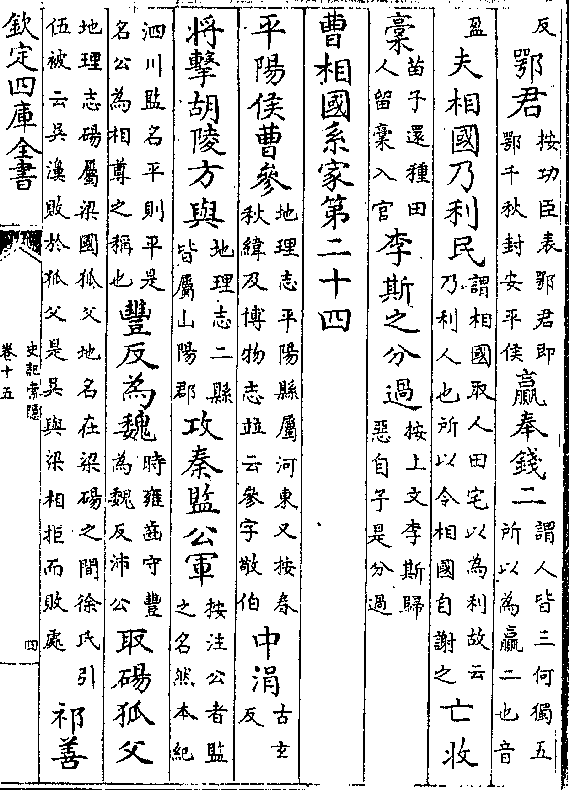 反鄂君按功臣表鄂君即鄂千秋封安平侯贏奉錢二謂人皆三何獨五所以為贏二也音
盈夫相國乃利民謂相國取人田宅以為利故云乃利人也所以令相國自謝之亡收
稾苗子還種田人留稾入官李斯之分過按上文李斯歸惡自子是分過
曹相國系家第二十四
平陽侯曹參地理志平陽縣屬河東又按春秋緯及博物志竝云參字敬伯中涓古玄反
将擊胡陵方與地理志二縣皆屬山陽郡攻秦監公軍按注公者監之名然本紀
泗川監名平則平是名公為相尊之稱也豐反為魏時雍齒守豐為魏反沛公取碭狐父
地理志碭屬梁國狐父地名在梁碭之間徐氏引伍被云吳濞敗於狐父是吳與梁相拒而敗處祁善
欽定四庫全書
史記索隱
卷十五
四